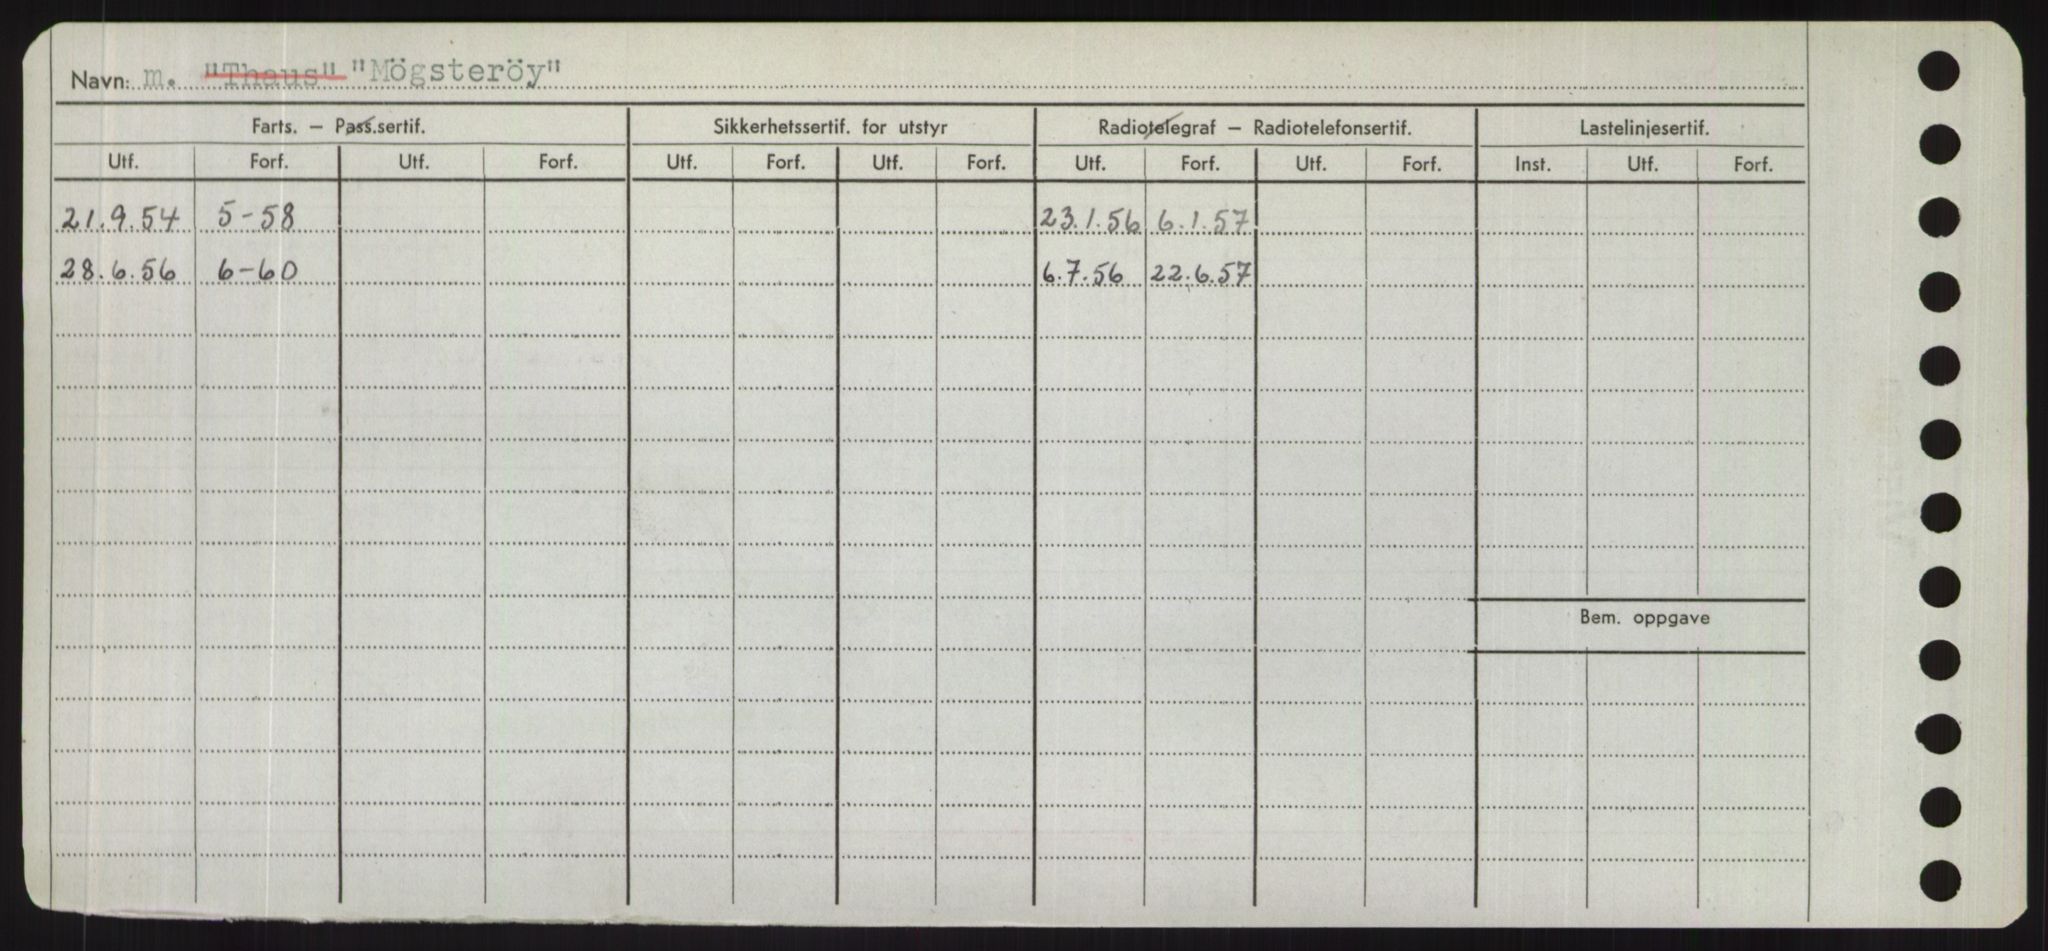 Navn: m. "Thaus" "Mögsteröy"
Farts. – Pass.sertif. Sikkerhetssertif. for utstyr Radiotelegraf – Radiotelefonsertif. Lastelinjesertif.
Utf. Forf. Utf. Forf. Utf. Forf. Utf. Forf. Utf. Forf. Utf. Forf. Inst. Utf. Forf.
21.9.54 5-58 23.1.56 6.1.57
28.6.56 6-60 6.7.56 22.6.57
Bem. oppgave